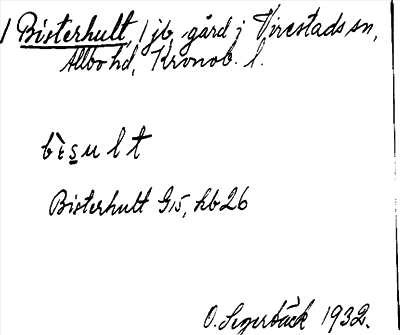 1 Bisterhult, 1 jb, gård i Virestads sn,
Allbo hd, Kronob. l.
bìsu̱lt
Bisterhult G15, hb 26
O. Segerbäck 1932.